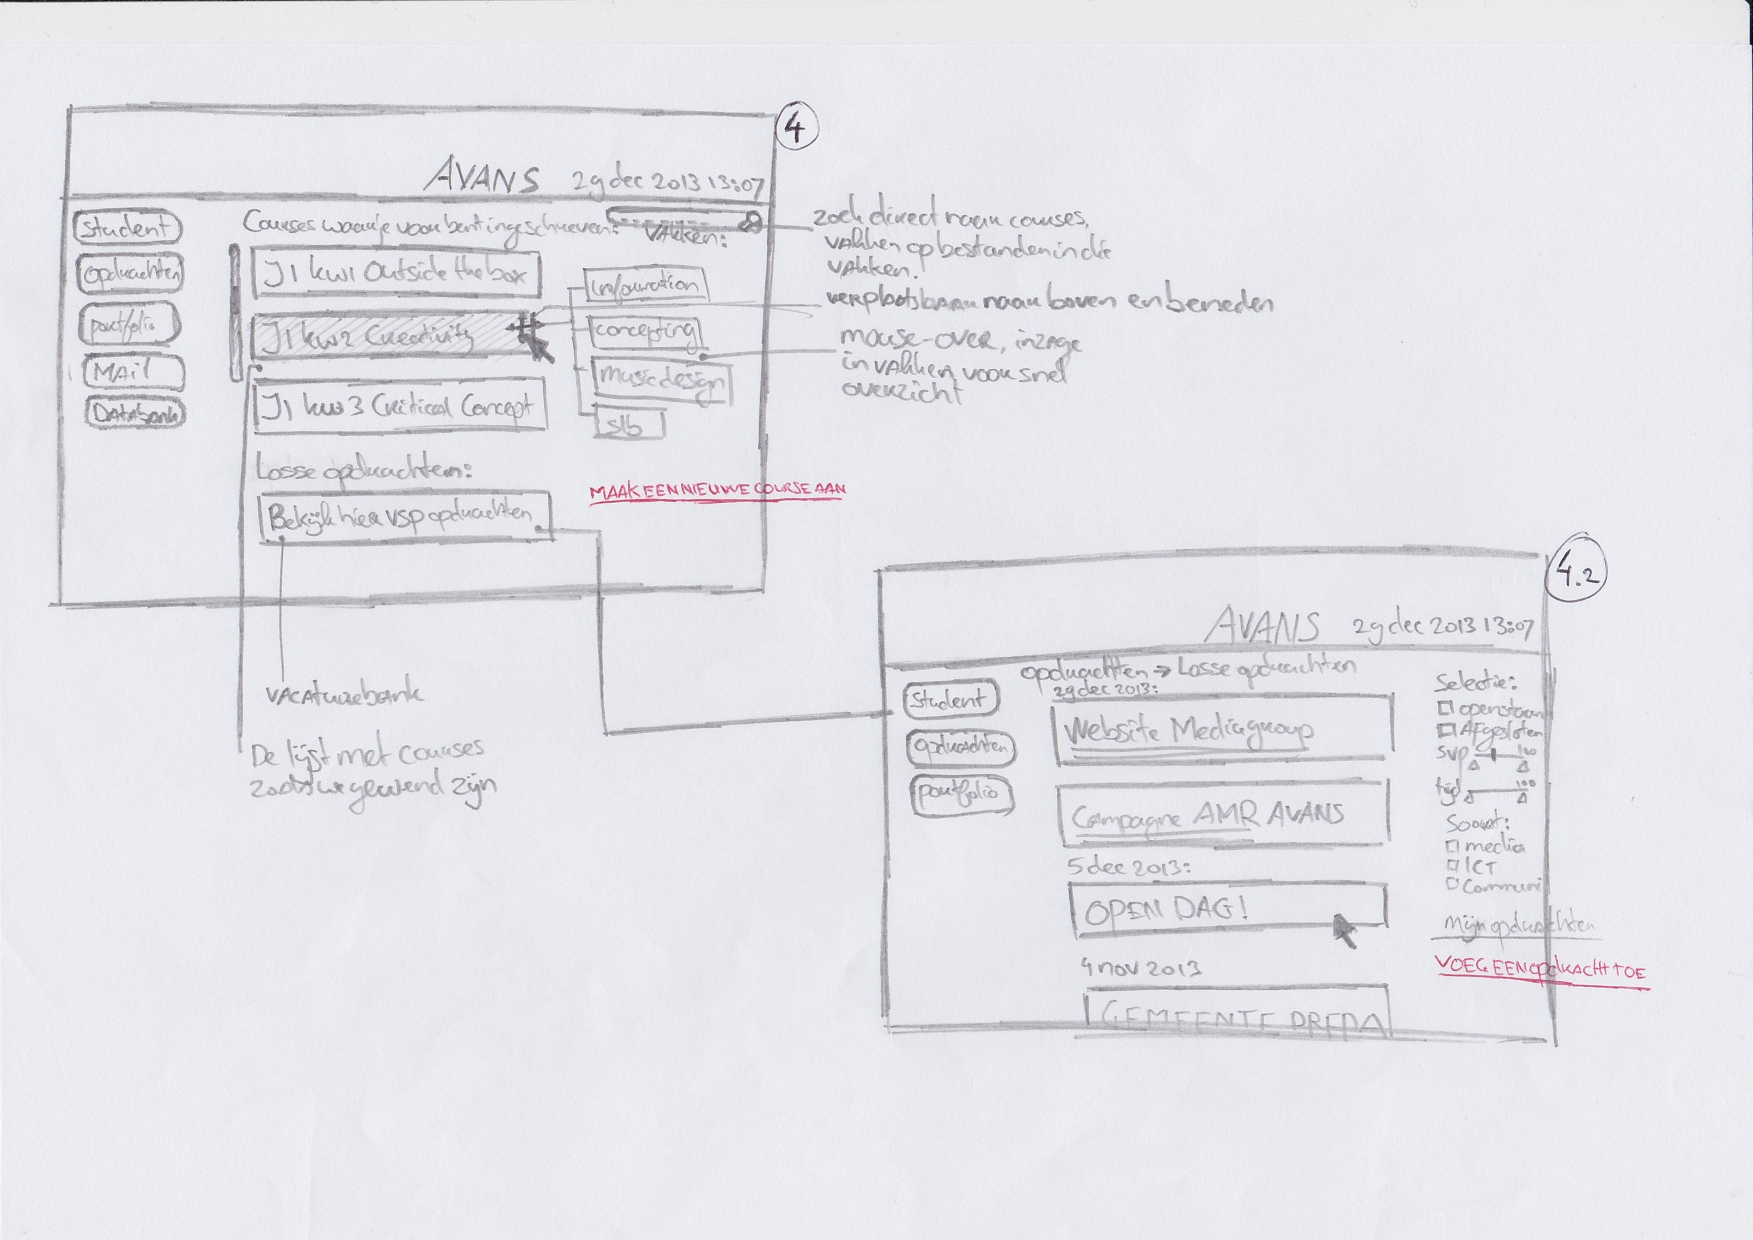 4
AVANS 29 dec 2013 13:07
student
opdrachten
portfolio
MAil
DATAbank
Courses waar je voor bent ingeschreven:
VAkken:
J1 kw1 Outside the box
J1 kw2 Creativity
J1 kw3 Critical Concept
information
concepting
music design
slb
Losse opdrachten:
Bekijk hier VSP opdrachten
MAAK EEN NIEUWE COURSE AAN
zoek direct naar courses,
vakken op bestanden in die
vakken.
verplaatsbaar naar boven en beneden
mouse-over, inzage
in vakken, voor snel
overzicht
VACAturebank
De lijst met courses
zoals we gewend zijn
4.2
AVANS 29 dec 2013 13:07
student
opdrachten
portfolio
opdrachten → Losse opdrachten
29 dec 2013:
Website Mediagroup
Campagne AMR AVANS
5 dec 2013:
OPEN DAG!
4 nov 2013
GEMEENTE BREDA
Selectie:
openstaan
Afgesloten
svp 100
tijd 100
Soort:
media
ICT
Communi
Mijn opdrachten
VOEG EEN OpdRACHT TOE